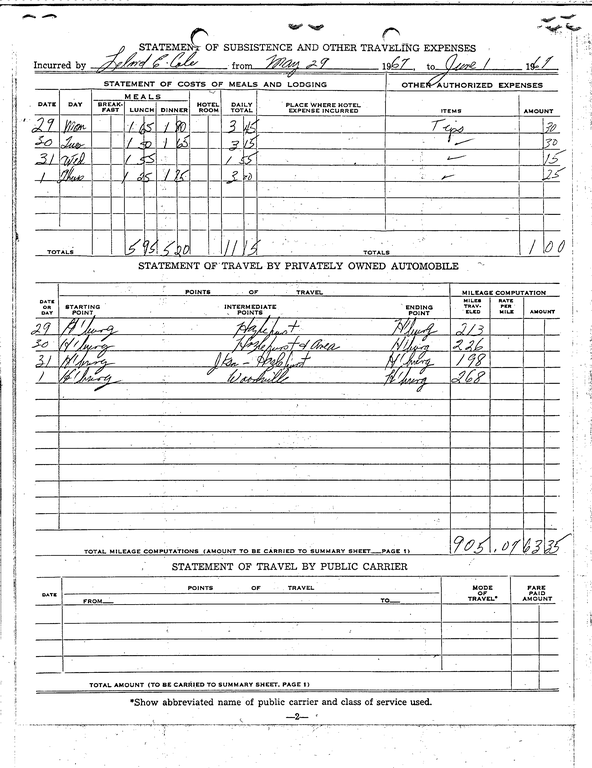 STATEMENT OF SUBSISTENCE AND OTHER TRAVELING EXPENSES
Incurred by Leland E. Cole from May 29 1967 to June 1 1967
STATEMENT OF COSTS OF MEALS AND LODGING OTHER AUTHORIZED EXPENSES
DATE DAY MEALS BREAK-FAST LUNCH DINNER HOTEL ROOM DAILY TOTAL PLACE WHERE HOTEL EXPENSE INCURRED ITEMS AMOUNT
29 Mon 1 65 1 80 3 45 Tips 30
30 Tues 1 50 1 65 3 15 ✓ 30
31 Wed 1 55 1 55 ✓ 15
1 Thurs 1 25 1 75 3 00 ✓ 25
TOTALS 5 95 5 20 11 15 TOTALS 1 00
STATEMENT OF TRAVEL BY PRIVATELY OWNED AUTOMOBILE
POINTS OF TRAVEL MILEAGE COMPUTATION
DATE OR DAY STARTING POINT INTERMEDIATE POINTS ENDING POINT MILES TRAV-ELED RATE PER MILE AMOUNT
29 H'burg Hazlehurst H'burg 213
30 H'burg Hazlehurst & Area H'burg 226
31 H'burg Jksn - Hazlehurst H'burg 198
1 H'burg Woodville H'burg 268
TOTAL MILEAGE COMPUTATIONS (AMOUNT TO BE CARRIED TO SUMMARY SHEET__PAGE 1) 905 .07 63 35
STATEMENT OF TRAVEL BY PUBLIC CARRIER
DATE POINTS OF TRAVEL MODE OF TRAVEL* FARE PAID AMOUNT
FROM__ TO__
TOTAL AMOUNT (TO BE CARRIED TO SUMMARY SHEET, PAGE 1)
*Show abbreviated name of public carrier and class of service used.
—2—